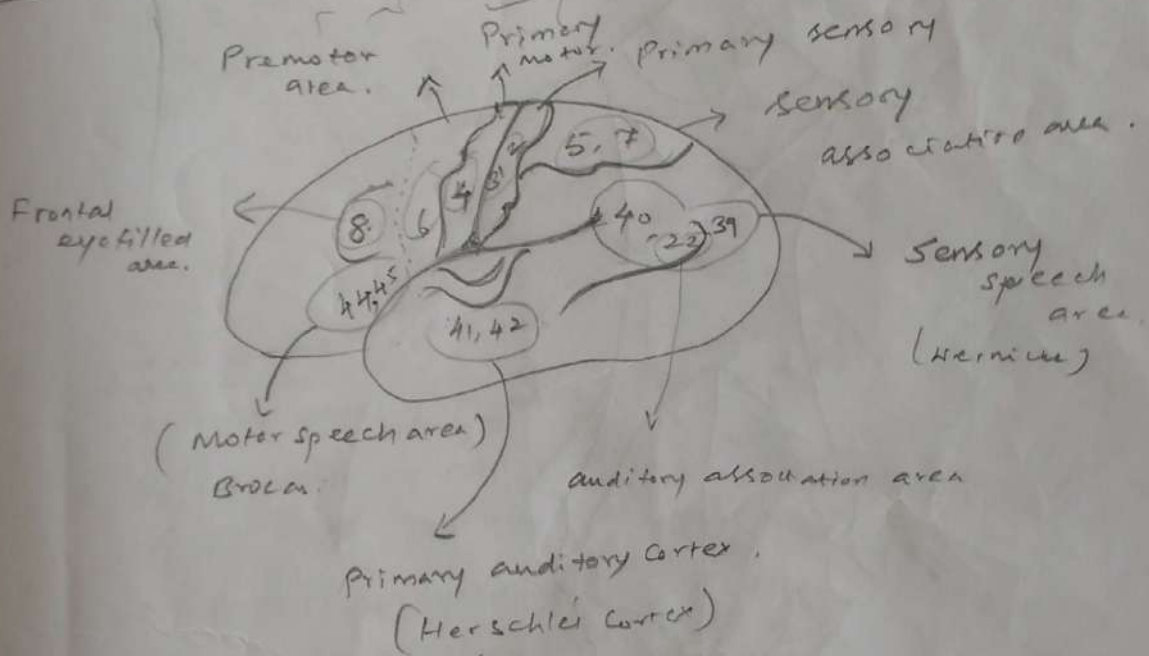 Premotor
area.
Primary
motor.
Primary sensory
sensory
association area.
Frontal
eyefilled
area.
8
6
4
5, 7
40
22
39
44,45
41, 42
Sensory
speech
area
(Wernicke)
(Motor speech area)
Brocas
auditory association area
Primary auditory Cortex.
(Herschlei Cortex)